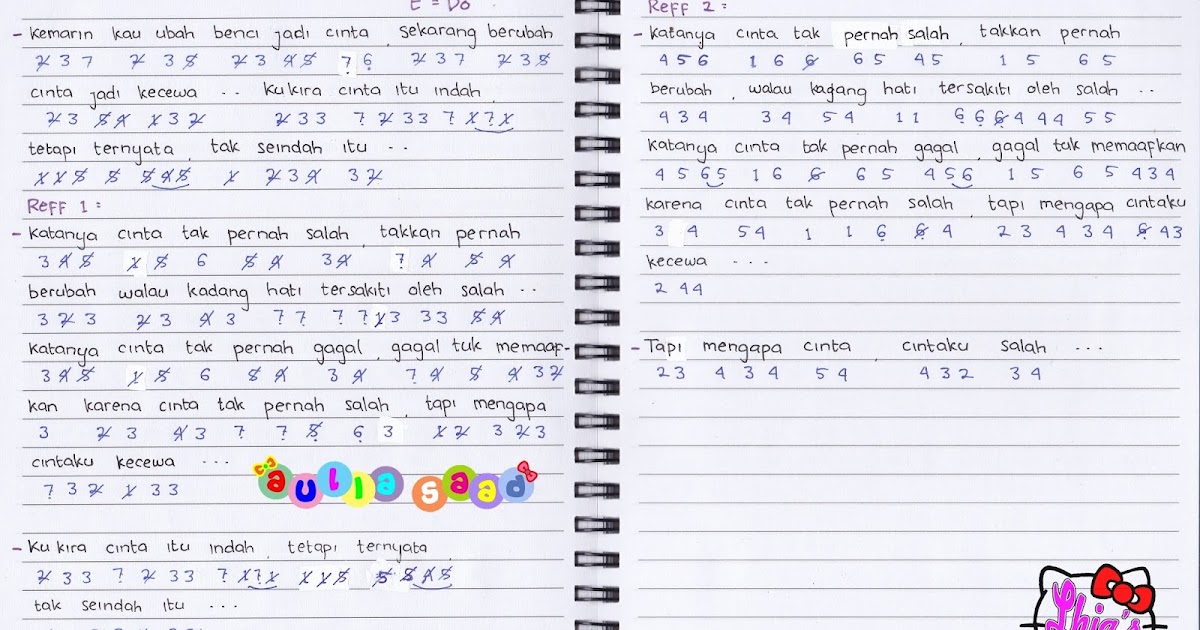 E = Do
- Kemarin kau ubah benci jadi cinta, sekarang berubah
2 3 7 2 3 5 2 3 4 5 7 6 2 3 7 2 3 5
cinta jadi kecewa .. Ku kira cinta itu indah,
2 3 5 4 1 3 2 2 3 3 7 2 3 3 7 1 7 1
tetapi ternyata, tak seindah itu ..
1 1 5 5 5 4 5 1 2 3 4 3 2
Reff 1 :
- Katanya cinta tak pernah salah, takkan pernah
3 4 5 1 5 6 5 4 3 4 7 4 5 4
berubah walau kadang hati tersakiti oleh salah ..
3 2 3 2 3 4 3 7 7 7 7 1 3 3 3 5 4
Katanya cinta tak pernah gagal, gagal tuk memaaf-
3 4 5 1 5 6 5 4 3 4 7 4 5 4 3 2
kan karena cinta tak pernah salah, tapi mengapa
3 2 3 4 3 7 7 5 6 3 1 2 3 2 3
cintaku kecewa ...
7 3 2 1 3 3
aulia saad
- Ku kira cinta itu indah, tetapi ternyata,
2 3 3 7 2 3 3 7 1 7 1 1 1 5 5 5 4 5
tak seindah itu ...
Reff 2 :
- Katanya cinta tak pernah salah, takkan pernah
4 5 6 1 6 6 6 5 4 5 1 5 6 5
berubah, walau kadang hati tersakiti oleh salah ..
4 3 4 3 4 5 4 1 1 6 6 6 4 4 4 5 5
Katanya cinta tak pernah gagal, gagal tuk memaafkan
4 5 6 5 1 6 6 6 5 4 5 6 1 5 6 5 4 3 4
karena cinta tak pernah salah, tapi mengapa cintaku
3 4 5 4 1 1 6 6 4 2 3 4 3 4 6 4 3
kecewa ...
2 4 4
- Tapi mengapa cinta, cintaku salah ...
2 3 4 3 4 5 4 4 3 2 3 4
Lhia's